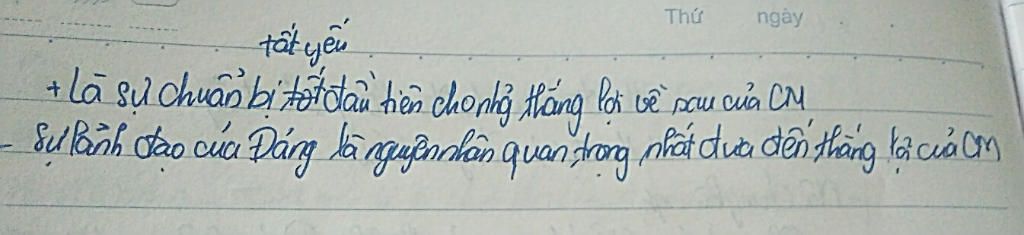 Thứ ngày
tất yếu
+ Là sự chuẩn bị đầu tiên cho những thắng lợi về sau của CM
- Sự lãnh đạo của Đảng là nguyên nhân quan trọng nhất đưa đến thắng lợi của CM